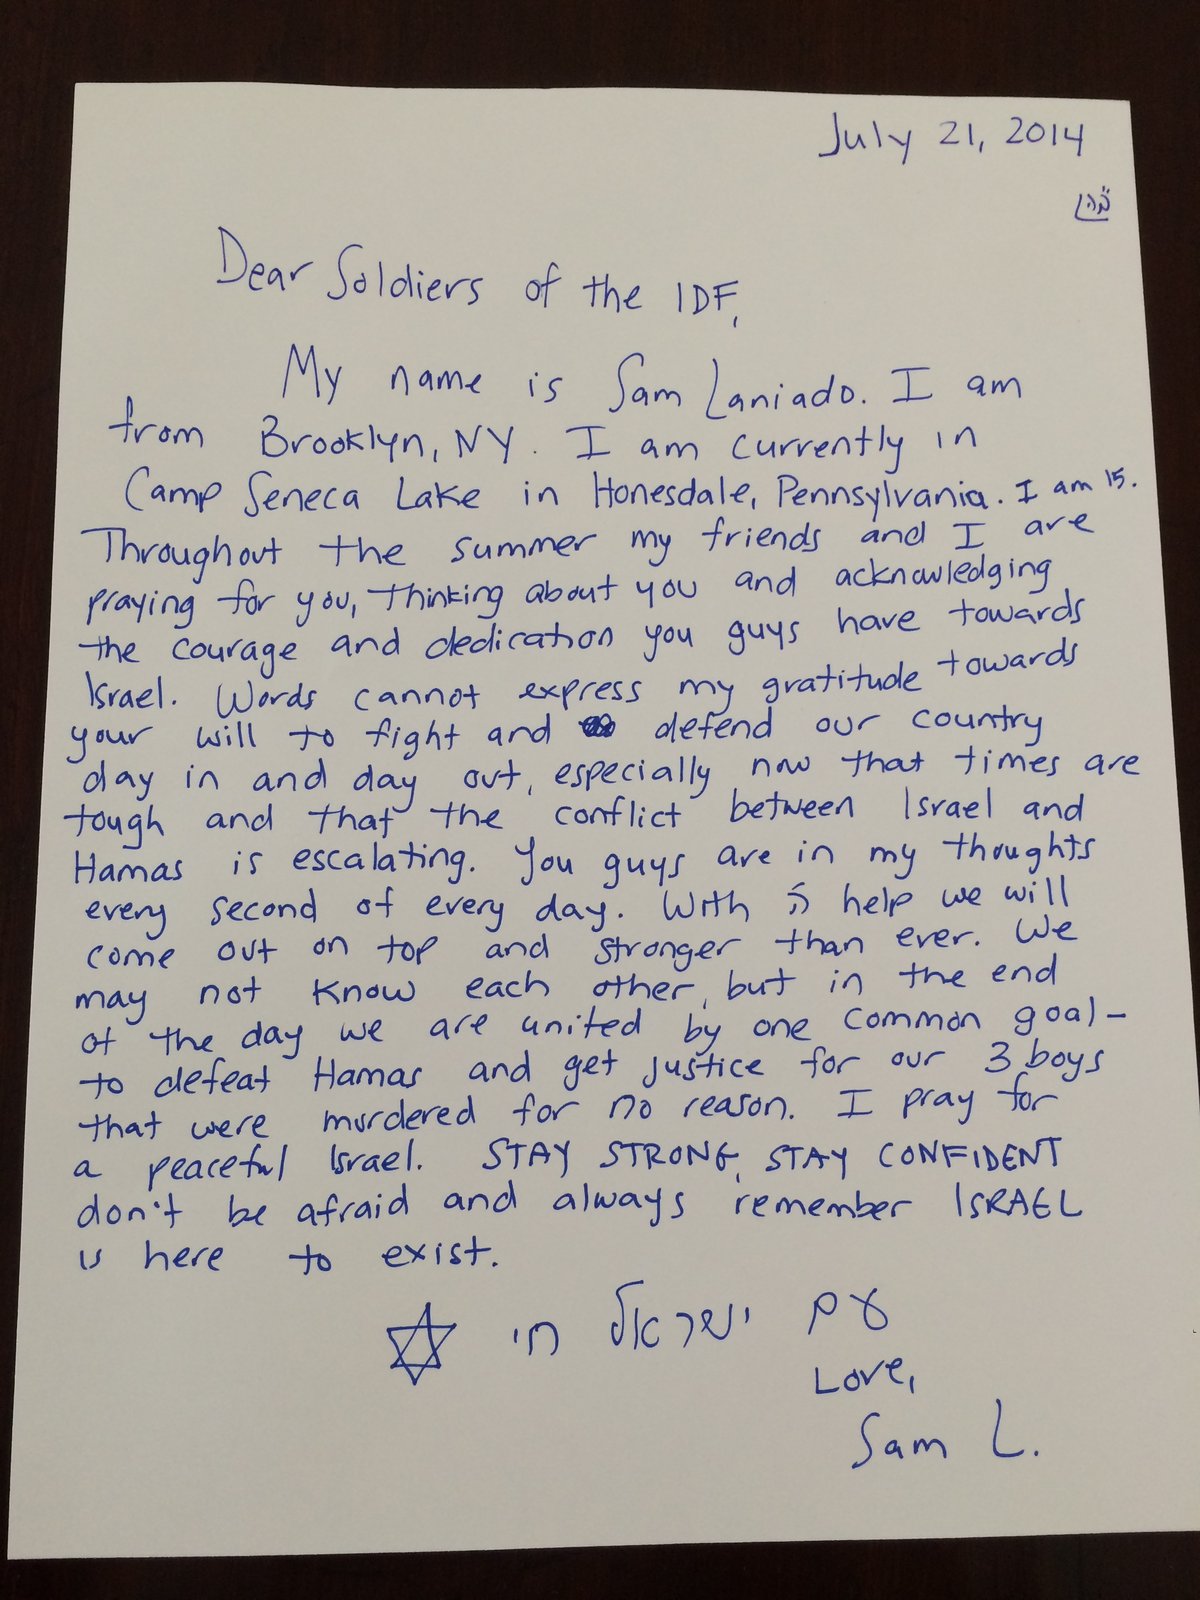 July 21, 2014
Dear Soldiers of the IDF,
My name is Sam Laniado. I am
from Brooklyn, NY. I am currently in
Camp Seneca Lake in Honesdale, Pennsylvania. I am 15.
Throughout the summer my friends and I are
praying for you, thinking about you and acknowledging
the courage and dedication you guys have towards
Israel. Words cannot express my gratitude towards
your will to fight and defend our country
day in and day out, especially now that times are
tough and that the conflict between Israel and
Hamas is escalating. You guys are in my thoughts
every second of every day. With ה' help we will
come out on top and stronger than ever. We
may not know each other, but in the end
of the day we are united by one common goal-
to defeat Hamas and get justice for our 3 boys
that were murdered for no reason. I pray for
a peaceful Israel. STAY STRONG, STAY CONFIDENT
don't be afraid and always remember ISRAEL
is here to exist.
עם ישראל חי
Love,
Sam L.